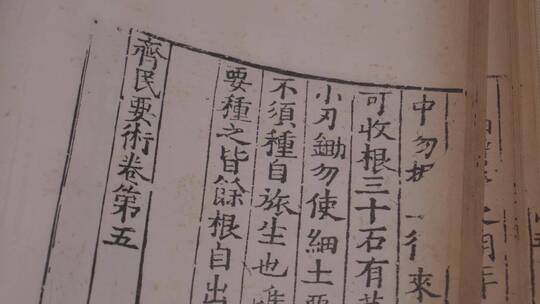 中勿 行來
可收根三十石有
小刃鋤勿使細土
不須種自旅生也
要種之皆餘根自出
齊民要術卷第五